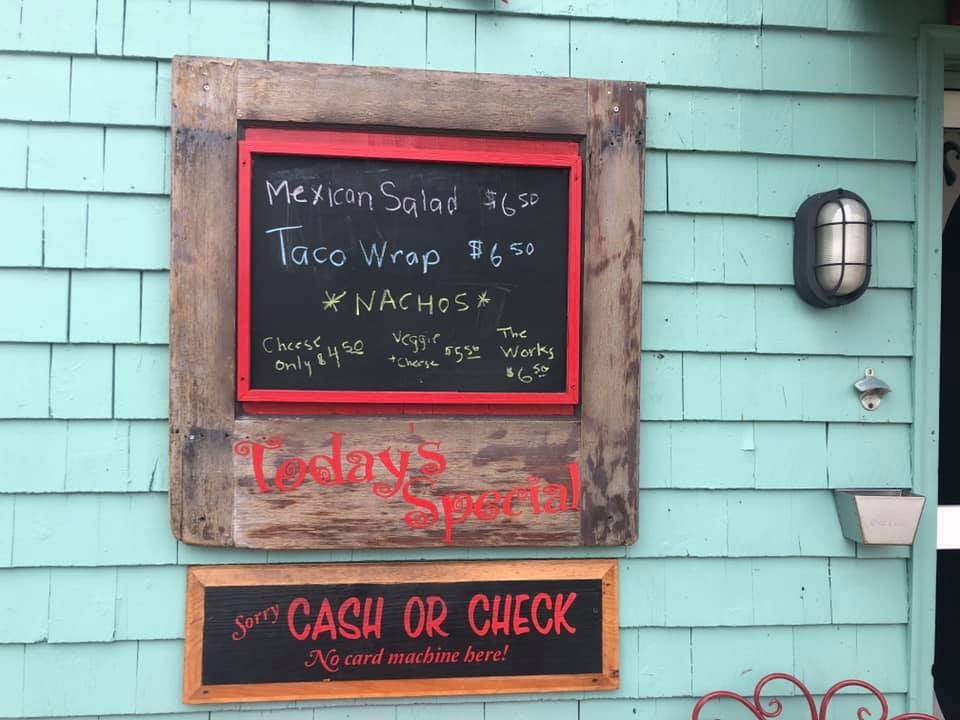 Mexican Salad $6 50
Taco Wrap $6 50
*NACHOS*
Cheese
only $4 50
Veggie
+ Cheese $5 50
The
Works
$6 50
Today's
Special
Sorry CASH OR CHECK
No card machine here!